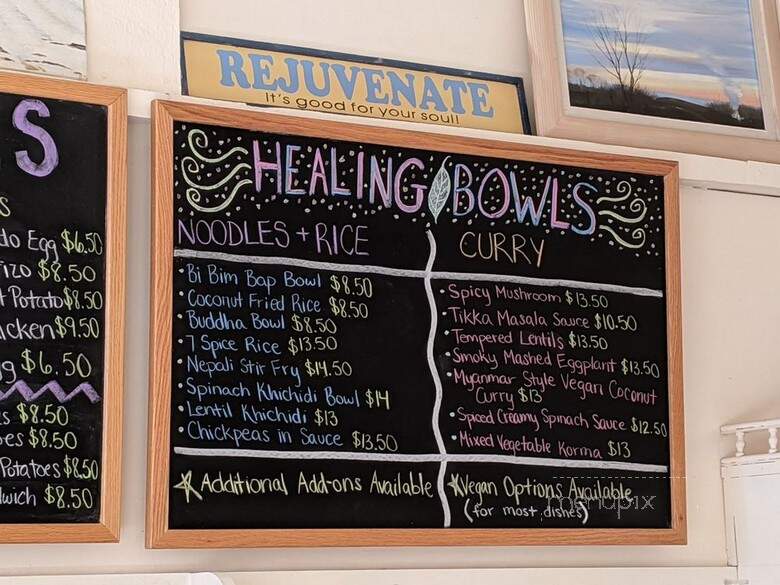 REJUVENATE
It's good for your soul!
S
S
do Egg $6.50
izo $8.50
t Potato $8.50
icken $9.50
g $6.50
s $8.50
oes $8.50
Potatoes $8.50
dwich $8.50
HEALING BOWLS
NOODLES + RICE
• Bi Bim Bap Bowl $8.50
• Coconut Fried Rice $8.50
• Buddha Bowl $8.50
• 7 Spice Rice $13.50
• Nepali Stir Fry $14.50
• Spinach Khichidi Bowl $14
• Lentil Khichidi $13
• Chickpeas in Sauce $13.50
Additional Add-ons Available
CURRY
• Spicy Mushroom $13.50
• Tikka Masala Sauce $10.50
• Tempered Lentils $13.50
• Smoky Mashed Eggplant $13.50
• Myanmar Style Vegan Coconut
Curry $13
• Spiced Creamy Spinach Sauce $12.50
• Mixed Vegetable Korma $13
Vegan Options Available
(for most dishes)
menupix